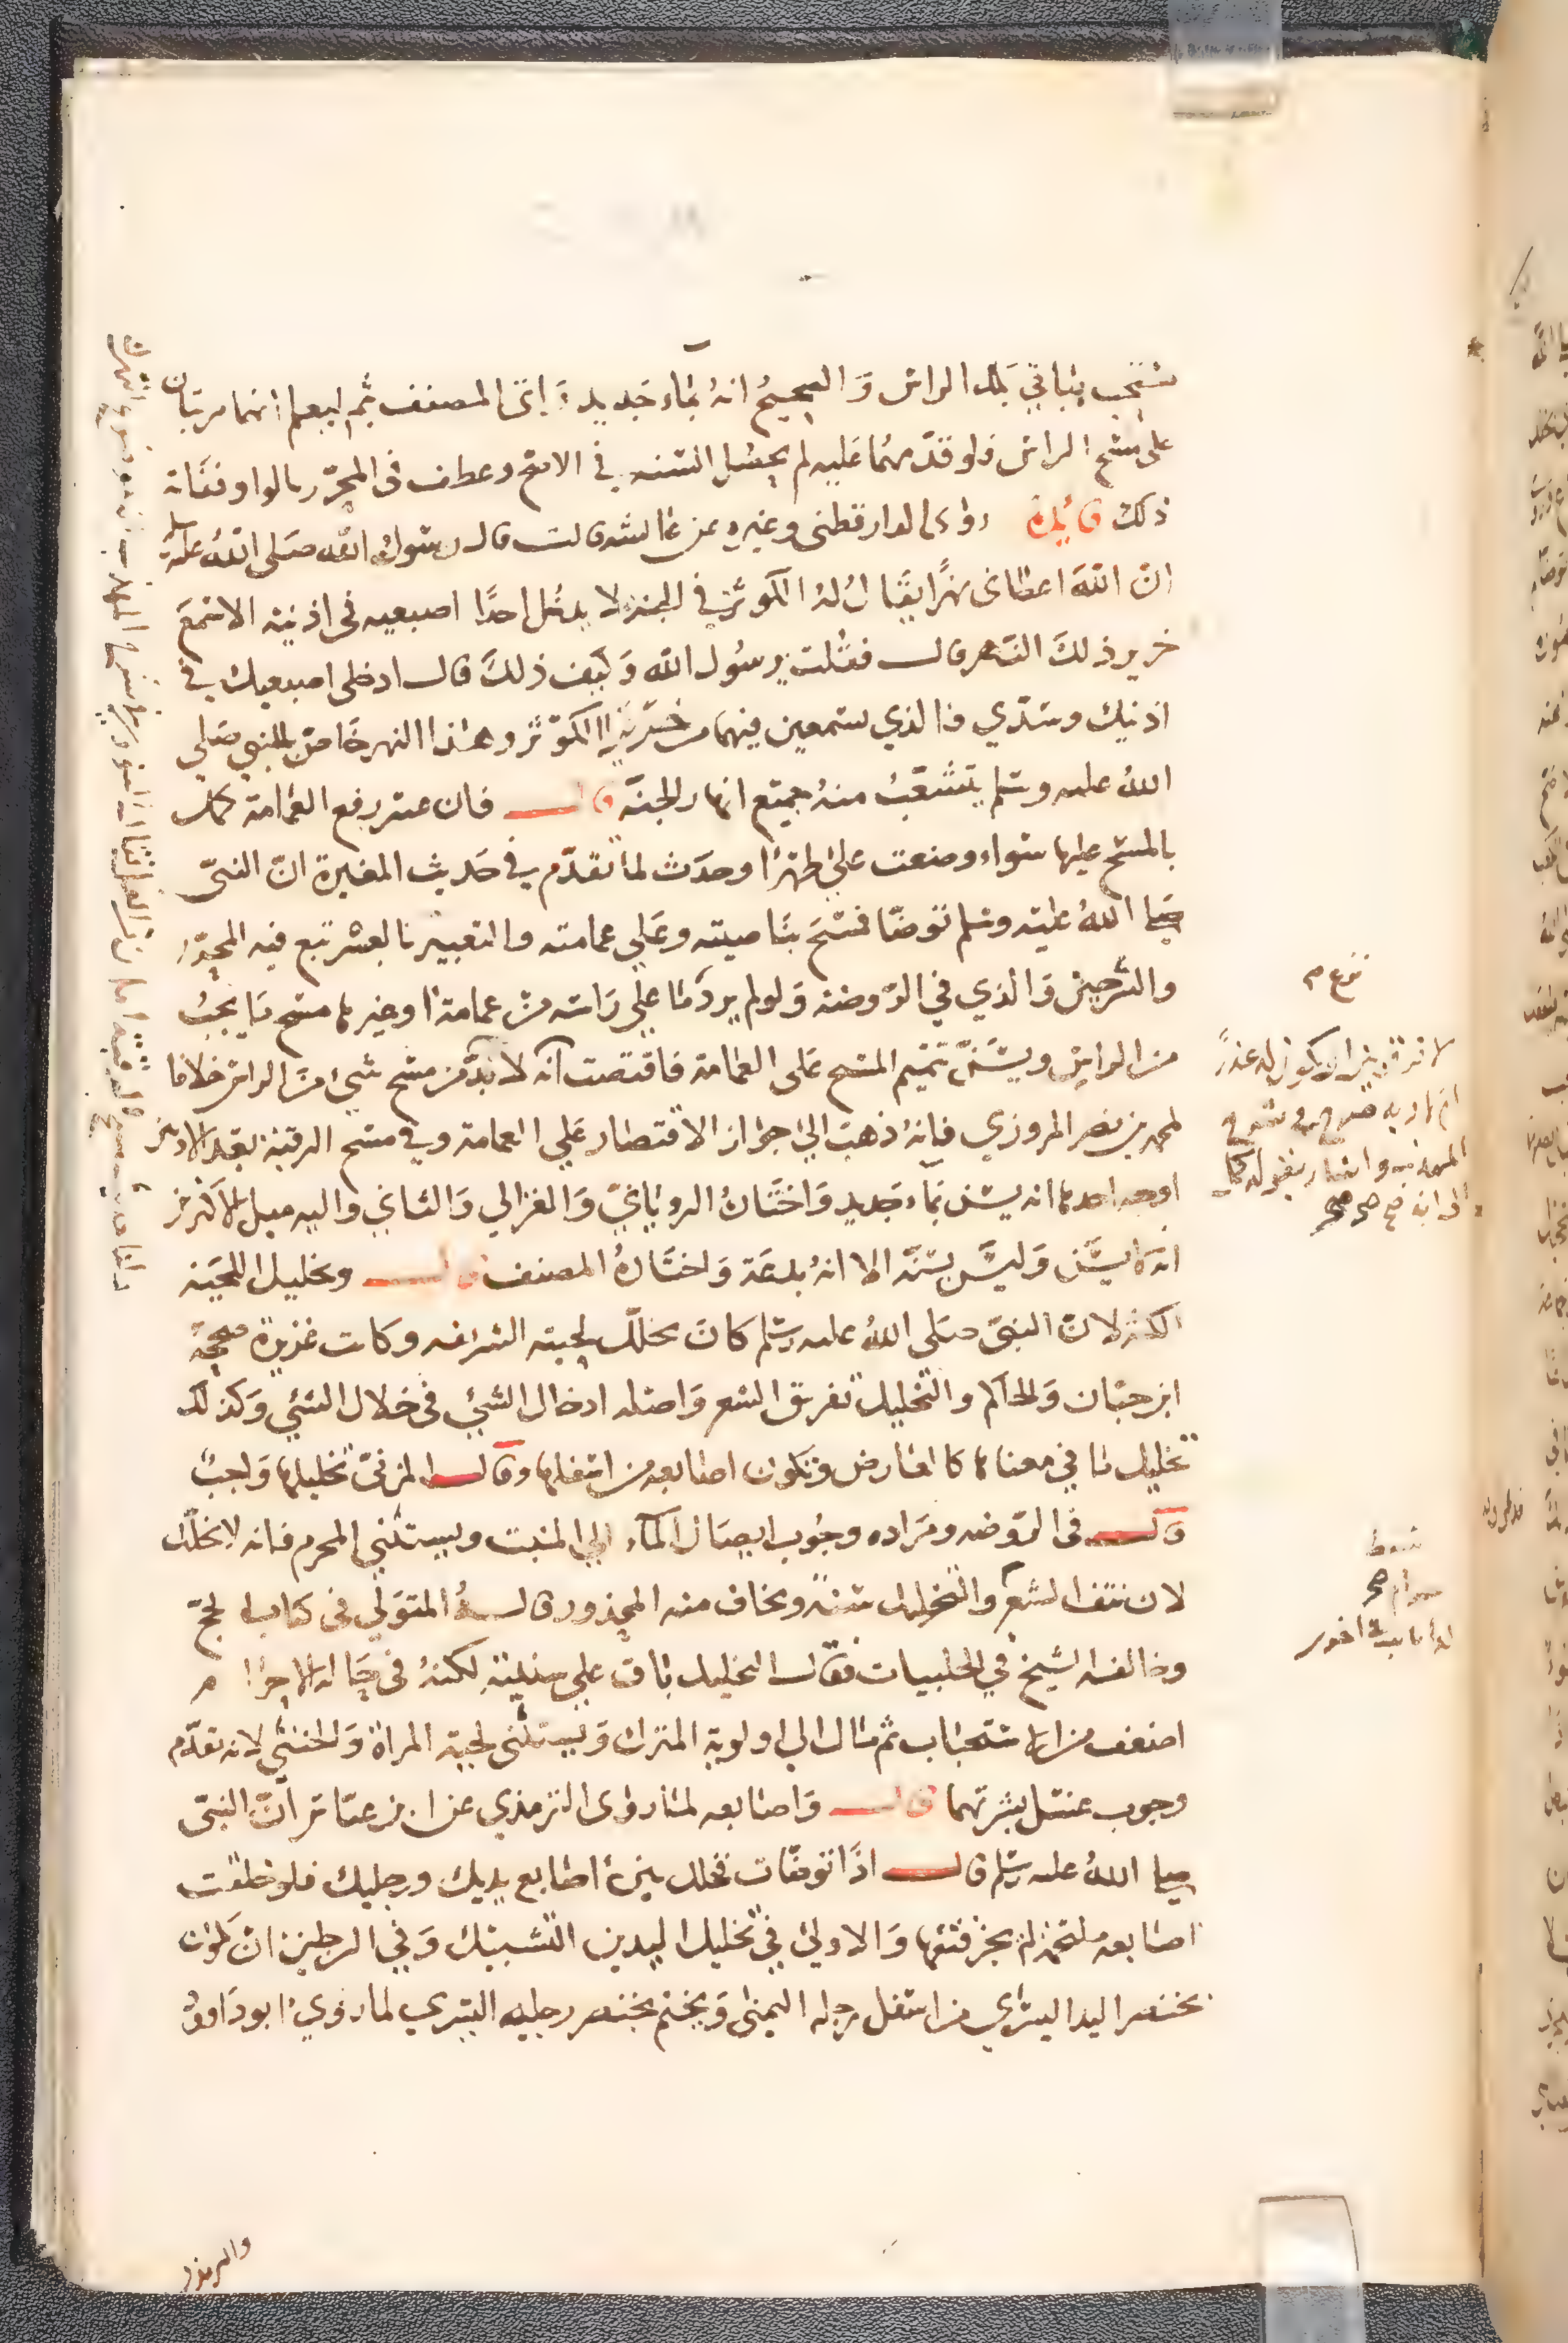 يستحب بباقي بلل الراس وَالصحيحُ انهُ بماء جَديد وَاتى المصنف بثم ليعلم انهما مرتبان
على مسح الراس فلو قدّمهما عَليه لم يحصل السنه في الاصح وعطف في المحرّر بالواو ففاته
ذلك فائدة روى الدارقطنى وغيره عن عائشه قالت قال رسُولُ الله صَلى اللهُ عليه وسلم
انّ اللهَ اعطانى نهرًا يقَال لهُ الكوثرُ في الجنه لا يدخل احدًا اصبعيه فى اذنيه الا سَمعَ
خرير ذلكَ النَهر قالت فقلت يرسُول الله وَكيف ذلكَ قال ادخلى اصبعيك في
اذنيك وسدّي فالذي تسمعين فيهما من خرير الكوثر وهذا النهر خَاصّ بالنبي صَلي
اللهُ عليه وسَلم يتشعّبُ منهُ جميع انهار الجنّة قال فان عسر رفع العمامة كمل
بالمسح عليها سَواء وضعت على طهر او حدَث لما تقدّم في حَديث المغيرة انّ النبيّ
صَلى اللهُ عليه وسَلم توضّا فمسَحَ بنَاصيته وعَلي عمامته والتعبير بالعسر تبع فيه المحرّر
والشرحين وَالذي في الرّوضه وَلو لم يرد نزع مَا علي رَاسه من عمامة او غيرها مسَح مَا يجبُ
من الراس ويسَنّ تتميم المسَح عَلى العمامة فاقتضت انّه لا بدّ من مسَح شيء منَ الراس خلافا
لمحمد بن نصر المروزي فانهُ ذهبَ الى جوَاز الاقتصار عَلي العمامة وفي مسَح الرقبة بعد الاذنين
اوجه احدها انه يسَن بمَاء جَديد وَاختَارهُ الرويَانيّ وَالغزالي وَالثاني واليه ميل الاكثرين
انه لا يسَن وَليسَ بسُنّه الا انهُ بدعَة وَاختَارهُ المصنف قال وتخليل اللحيَه
الكثه لانّ النبيّ صَلى اللهُ عليه وسَلم كانَ يخللّ لحيته الشريفه وكانت غزيرة صححهُ
ابن حبّان وَالحاكم والتخليل تفريق الشعر وَاصله ادخال الشيء فى خلال الشيء وَكذلكَ
تخليل مَا في معناها كالعَارض وتكون اصَابعه من اسفلها وقال المزنىّ تخليلها وَاجبٌ
قال فى الرّوضه ومرَاده وجُوب ايصَال الماء الي المنبت ويستثني المحرم فانه لا يخلّل
لان نتف الشعر والتخليل سنة ويخاف منه المحذور قالهُ المتولي فى كتاب الحجّ
وخالفه الشيخ في الحلبيات فقال التخليل باق علي سنيته لكنهُ فى حَالة الاحرام
اضعف من استحبَاب ثم مَال الي اولوية الترك وَيستثنى لحية المراة وَالخنثي لانه تقدّم
وجوب غسَل بشرتهما قال وَاصابعه لمَا روَى الترمذي عن ابن عبّاس انّ النبيّ
صَلى اللهُ عليه وسَلم قال اذَا توضّات فخلل بينَ اصَابع يديك ورجليك فلو خلقت
اصَابعه ملتحمة لم يجز فتقها وَالاولىَ في تخليل اليدين التشبيك وَفي الرجلين ان يكون
بخنصر اليد اليسرَى من اسفل رجله اليمنى وَيختم بخنصر رجله اليسري لما روىَ ابو دَاوُد
والترمذى
لا فرق بين ان يكون له عذر
ام لا وبه صرح في شرح
المهذب واشار بقوله كمل
الى انه صح صح صح